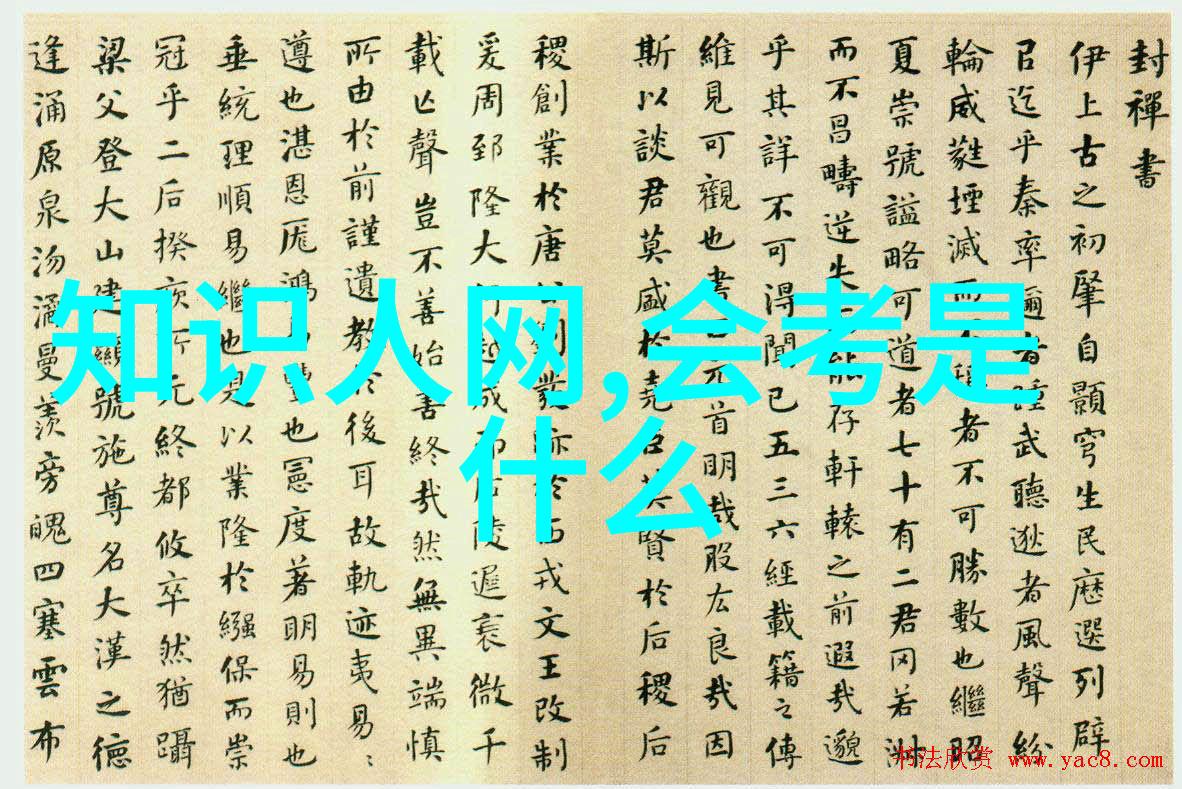 封禪書
伊上古之初肇自顥穹生民歷選列辟
㠯迄乎秦率邇者踵武聽逖者風聲紛
輪威蕤堙滅而不稱者不可勝數也繼昭
夏崇號謚略可道者七十有二君罔若淑
而不昌疇逆失能存軒轅之前遐哉邈
乎其詳不可得聞已五三六經載籍之傳
維見可觀也書元首明哉股厷良哉因
斯以談君莫盛於堯臣莫賢於后稷后
稷創業於唐公劉發迹於西戎文王改制
爰周郅隆大行越成而后陵遲衰微千
載亡聲豈不善始善終哉然無異端慎
所由於前謹遺教於後耳故軌迹夷易〻
遵也湛恩厖鴻易豐也憲度著明易則也
垂統理順易繼也是以業隆於繈保而崇
冠乎二后揆厥所元終都攸卒然猶躡
梁父登大山建顯號施尊名大漢之德
逢涌原泉沕潏曼羨旁魄四塞雲布
知识人网,会考是
什么
书法欣赏 www.yac8.com